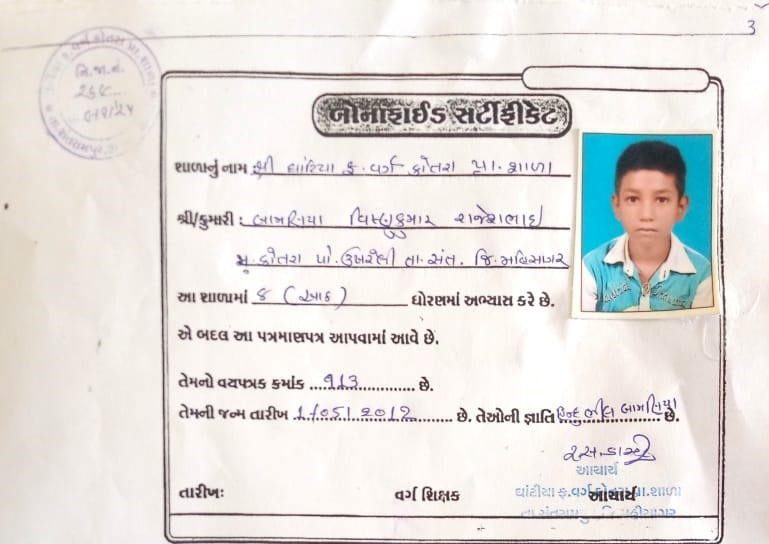 3
નિ.જા.નં.
બોનાફાઈડ સર્ટીફીકેટ
શાળાનું નામ શ્રી ઘાંટીયા ફ.વર્ગ કોતરા પ્રા.શાળા
શ્રી/કુમારી : બામણિયા વિષ્ણુકુમાર રાજેશભાઇ
મુ.કોતરા પો.ઉખરેલી તા.સંત. જિ.મહિસાગર
આ શાળામાં ૮ (આઠ) ધોરણમાં અભ્યાસ કરે છે.
એ બદલ આ પત્રમાણપત્ર આપવામાં આવે છે.
તેમનો વયપત્રક કમાંક ૧૧૩ છે.
તેમની જન્મ તારીખ 1/05/2012 છે. તેઓની જ્ઞાતિ હિન્દુ ભીલ બામણિયા છે.
આચાર્ય
તારીખઃ વર્ગ શિક્ષક આચાર્ય
ઘાંટીયા ફ.વર્ગ કોતરા પ્રા.શાળા